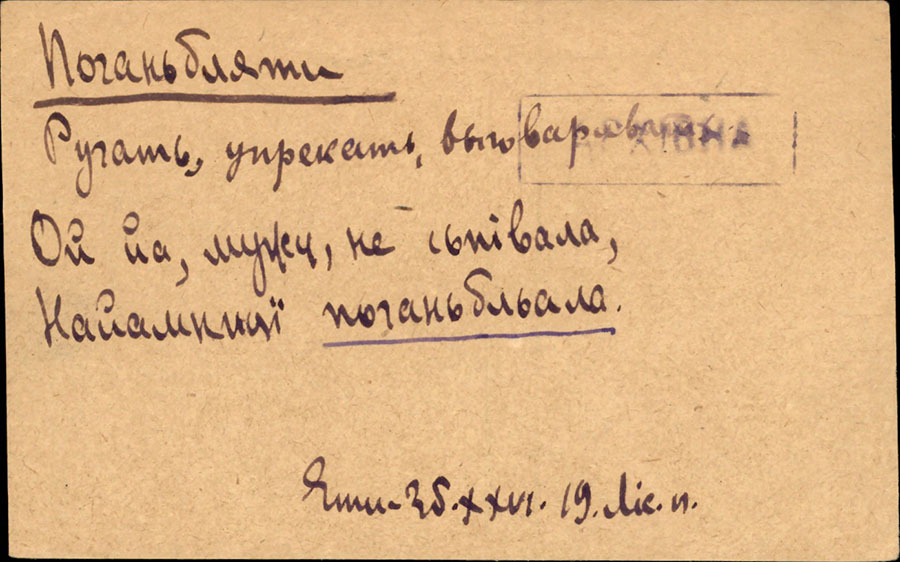 Поганьбляти
Ругать, упрекать, выговаривать
Ой йа, мужу, не сьпівала,
Найамниці поганьбльала.
Етн. Зб. XXVI. 19. Лік. п.